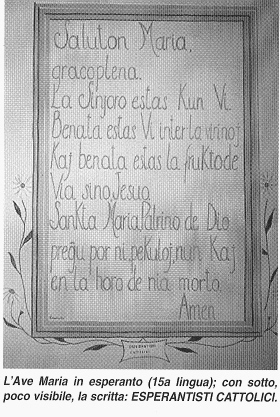 Saluton Maria,
gracoplena.
La Sinjoro estas Kun Vi.
Benata estas Vi inter la virinoj
Kaj benata estas la frukto de
Via sino Jesuo
Sankta Maria, Patrino de Dio
preĝu por ni pekuloj, nun Kaj
en la horo de nia morto.
Amen
ESPERANTISTI
CATTOLICI
L'Ave Maria in esperanto (15a lingua); con sotto,
poco visibile, la scritta: ESPERANTISTI CATTOLICI.